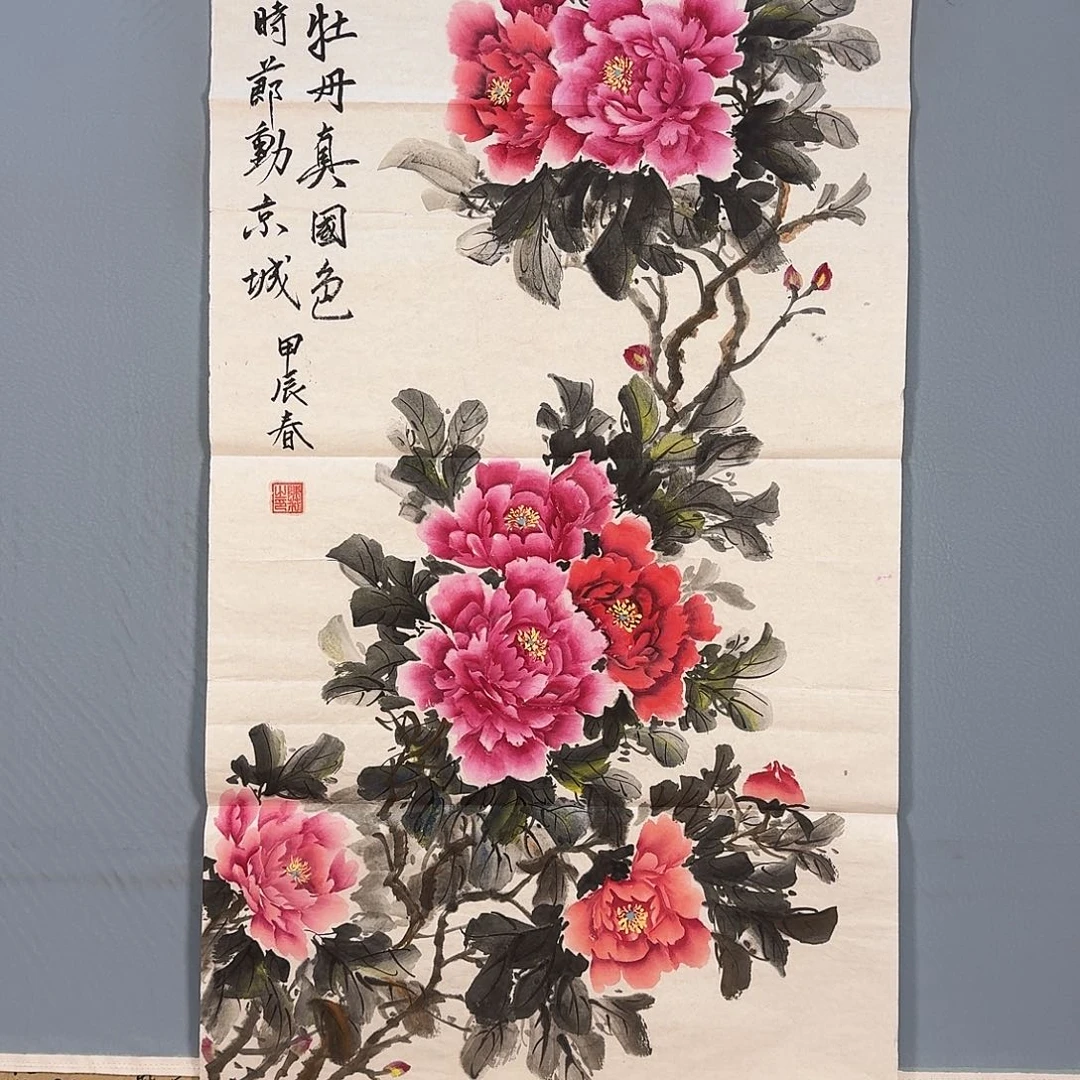 牡丹真國色
時節動京城
甲辰春